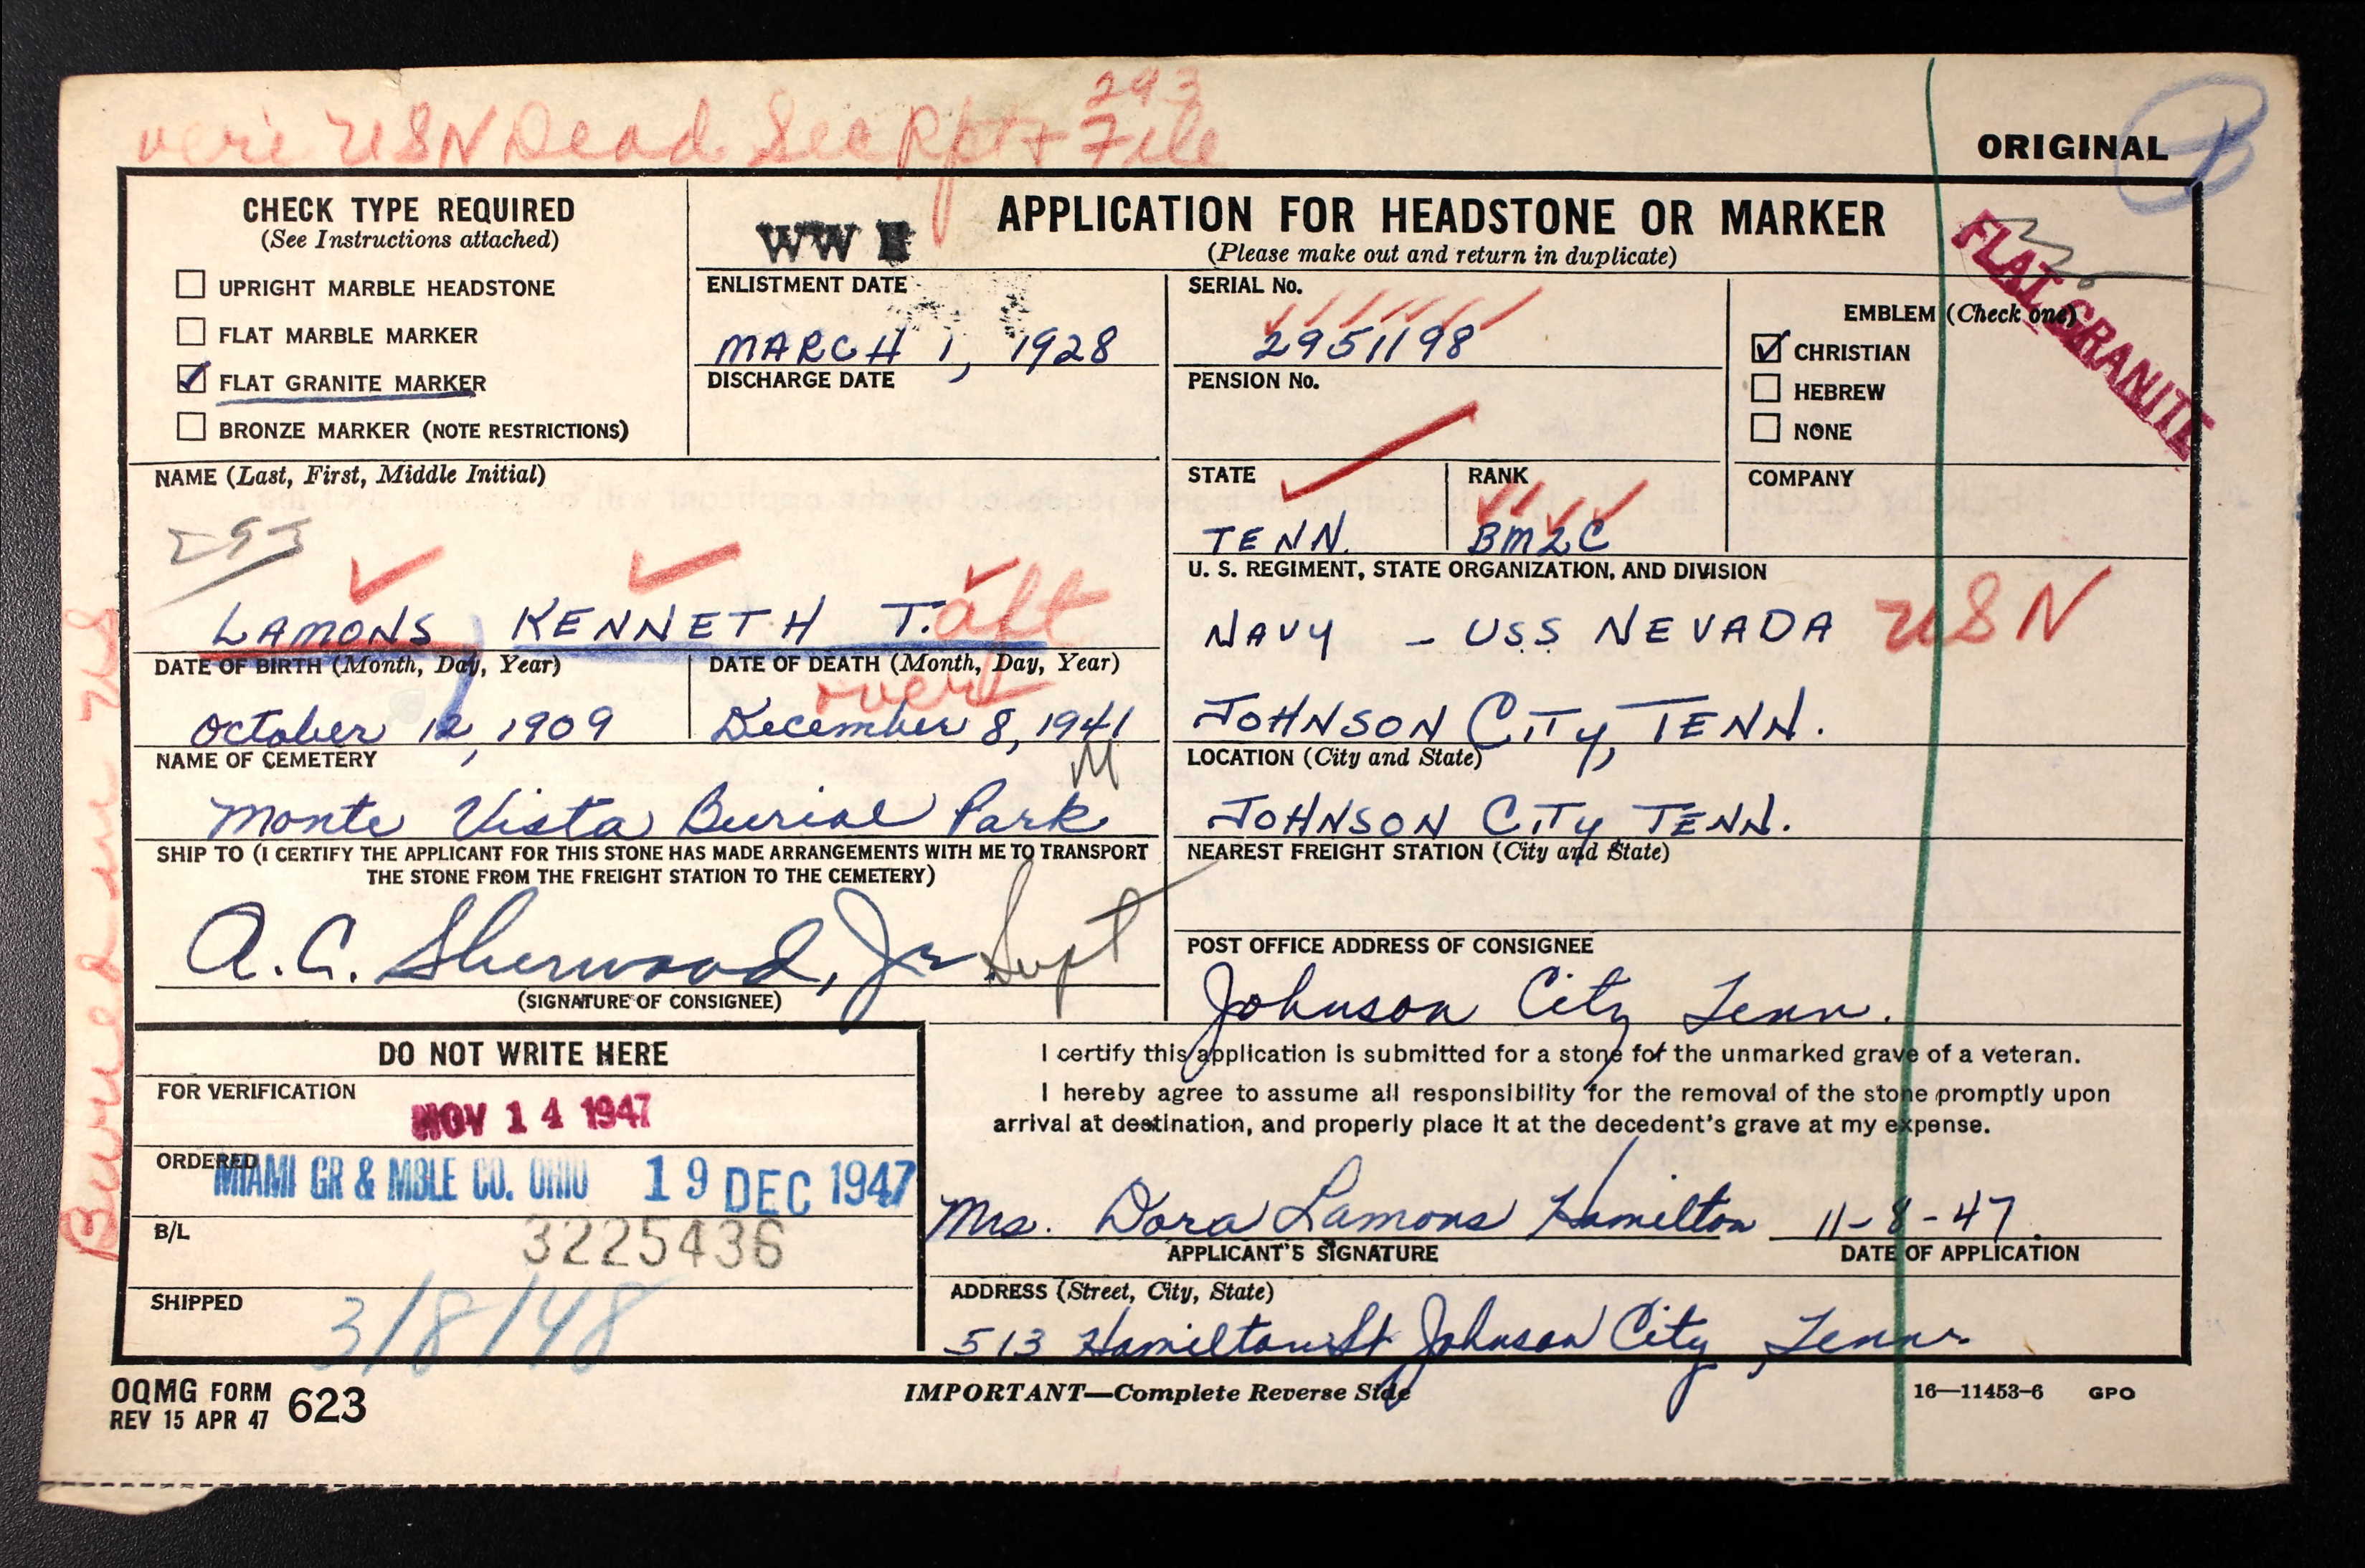 293
veri USN Dead See Rpt + File
ORIGINAL
CHECK TYPE REQUIRED
(See Instructions attached)
UPRIGHT MARBLE HEADSTONE
FLAT MARBLE MARKER
FLAT GRANITE MARKER
BRONZE MARKER (NOTE RESTRICTIONS)
WW II
APPLICATION FOR HEADSTONE OR MARKER
(Please make out and return in duplicate)
FLAT GRANITE
ENLISTMENT DATE
MARCH 1, 1928
DISCHARGE DATE
SERIAL No.
2951198
PENSION No.
EMBLEM (Check one)
CHRISTIAN
HEBREW
NONE
NAME (Last, First, Middle Initial)
LAMONS, KENNETH T. aft
STATE
TENN.
RANK
BM2C
COMPANY
U. S. REGIMENT, STATE ORGANIZATION, AND DIVISION
NAVY - USS NEVADA USN
JOHNSON CITY, TENN.
DATE OF BIRTH (Month, Day, Year)
October 12, 1909
DATE OF DEATH (Month, Day, Year)
over
December 8, 1941
NAME OF CEMETERY
Monte Vista Burial Park
LOCATION (City and State)
JOHNSON CITY, TENN.
SHIP TO (I CERTIFY THE APPLICANT FOR THIS STONE HAS MADE ARRANGEMENTS WITH ME TO TRANSPORT
THE STONE FROM THE FREIGHT STATION TO THE CEMETERY)
A. C. Sherwood, Jr Supt
(SIGNATURE OF CONSIGNEE)
NEAREST FREIGHT STATION (City and State)
POST OFFICE ADDRESS OF CONSIGNEE
Johnson City Tenn.
Buried in US
DO NOT WRITE HERE
FOR VERIFICATION
NOV 14 1947
ORDERED
MIAMI GR & MBLE CO. OHIO 19 DEC 1947
B/L
3225436
SHIPPED
3/8/48
I certify this application is submitted for a stone for the unmarked grave of a veteran.
I hereby agree to assume all responsibility for the removal of the stone promptly upon
arrival at destination, and properly place it at the decedent's grave at my expense.
Mrs. Dora Lamons Hamilton 11-8-47
APPLICANT'S SIGNATURE
DATE OF APPLICATION
ADDRESS (Street, City, State)
513 Hamilton St Johnson City, Tenn.
OQMG FORM 623
REV 15 APR 47
IMPORTANT—Complete Reverse Side
16—11453-6 GPO